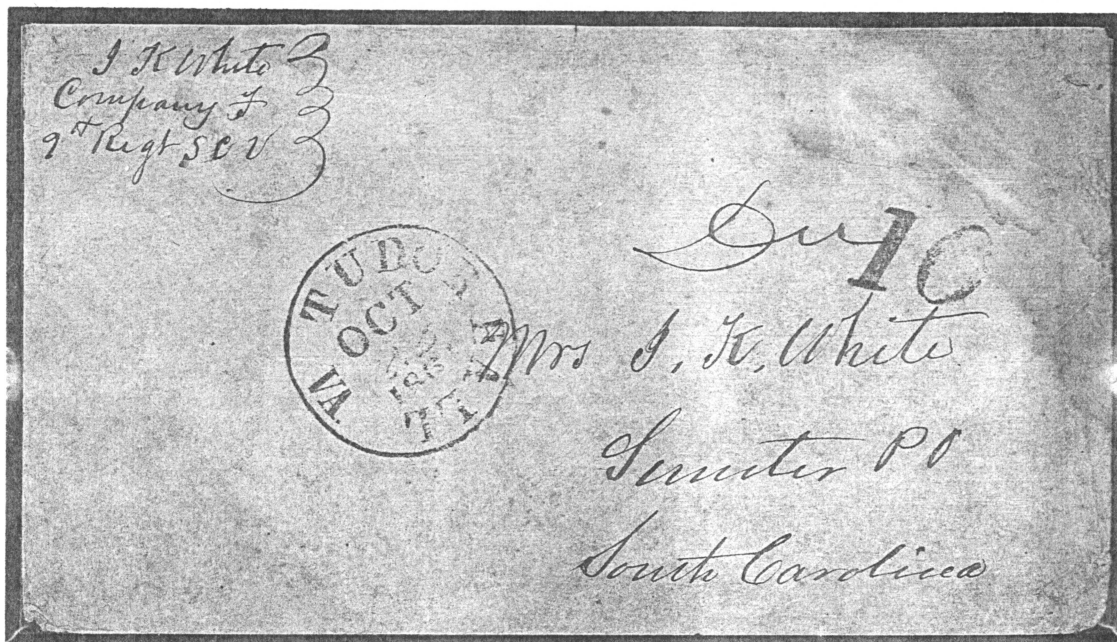 I K White
Company F
9th Regt S C V
Due 10
TUDOR HALL
VA.
OCT
186
Mrs I. K. White
Sumter PO
South Carolina